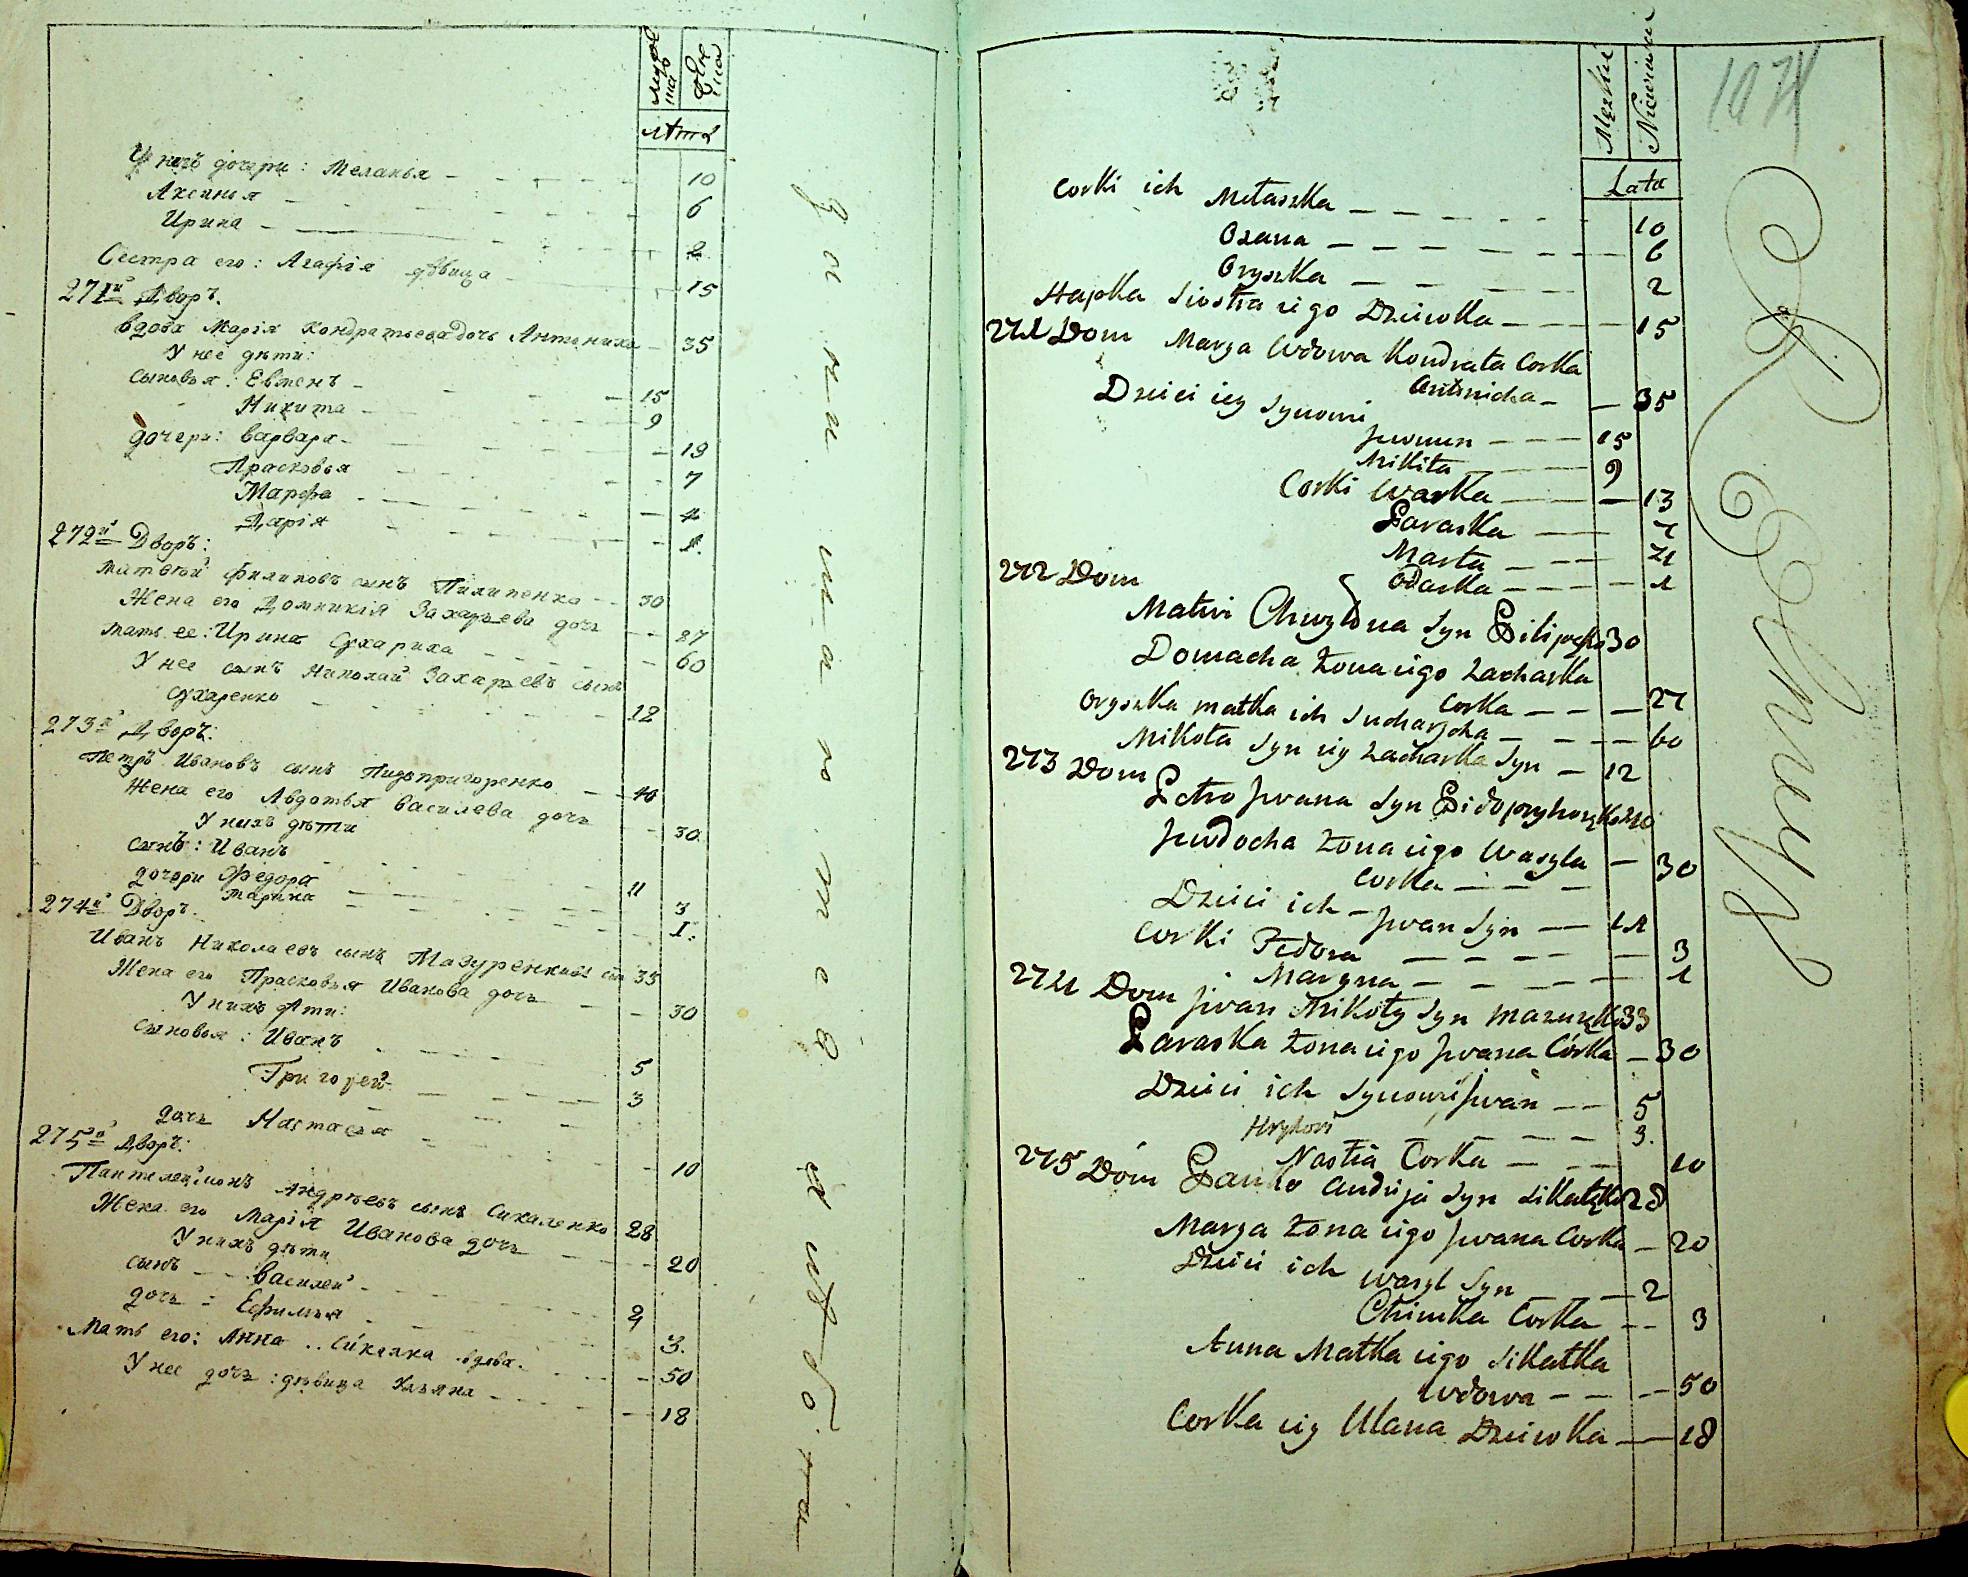 мужеска женска
лѣта
У нихъ дочери: Меланья - - - 10
Аксинья - - - 6
Ирина - - - 2
Сестра его: Агафія дѣвица - - 15
271й Дворъ.
вдова Марія Кондратьева дочь Антониха - 35
У нее дѣти:
сыновья: Евменъ - - - 15
Никита - - - 9
дочери: Варвара - - - 13
Прасковья - - - 7
Марфа - - - 4
Дарія - - - 1
272й Дворъ:
Матвей Филиповъ сынъ Пилипенко - - 30
Жена его Домникія Захарьева дочь - - 27
мать ее: Ирина Сухариха - - - 60
У нее сынъ Николай Захарьевъ сынъ
Сухаренко - - - 12
273й Дворъ:
Петръ Ивановъ сынъ Пидпригоренко - - 40
Жена его Авдотья Василева дочь - - 30
У нихъ дѣти
сынъ: Иванъ - - - 11
дочери Федора - - - 3
Марина - - - 1.
274й Дворъ.
Иванъ Николаевъ сынъ Мазуренко 35
Жена его Прасковья Иванова дочь - - 30
У нихъ дѣти:
сыновья: Иванъ - - - 5
Григорей - - - 3
дочь Настасья - - - 10
275й Дворъ:
Пантелеймонъ Андрѣевъ сынъ Сикаленко 28
Жена его Марія Иванова дочь - - 20
У нихъ дѣти
сынъ - - Василей - - - 2
дочь - Ефимья - - - 3.
Мать его: Анна .. Сикалка вдова. - - 50
У нее дочь: дѣвица Ульяна - - - 18
Męzkie Niewieście
107
Lata
Corki ich Mełaszka - - - 10
Oxana - - - 6
Oryszka - - - 2
Hapka Siostra iego Dziewka - - - 15
271 Dom Marya Wdowa Kondrata Corka
Antonicha - - 35
Dzieci iey Synowie
Jewmen - - - 15
Mikita - - - 9
Corki Warka - - - 13
Paraska - - - 7
Marta - - - 4
Odarka - - - 1
272 Dom
Matwi Chwyłona Syn Pilipęko 30
Domacha żona iego Zacharka
Corka - - - 27
Oryszka matka ich Sucharycha - - - 60
Mikoła Syn iey Zacharka Syn - 12
273 Dom
Petro Jwana Syn Pidopryhoręko 40
Jewdocha żona iego Wasyla - 30
Corka - - -
Dzieci ich - Jwan Syn - 11
Corki Fedora - - - 3
Maryna - - - 1
274 Dom Jwan Mikoły Syn Mazuręko 33
Paraska żona iego Jwana Córka - 30
Dzieci ich Synowie Jwan - - 5
Hryhori - - - 3.
Nastia Corka - - - 10
275 Dom Pańko Andrija Syn Sikałęko 28
Marya żona iego Jwana Corka - 20
Dzieci ich Wasyl Syn - - 2
Chimka Corka - - 3
Anna Matka iego Sikałka
Wdowa - - - 50
Corka iey Ulana Dziewka - 18